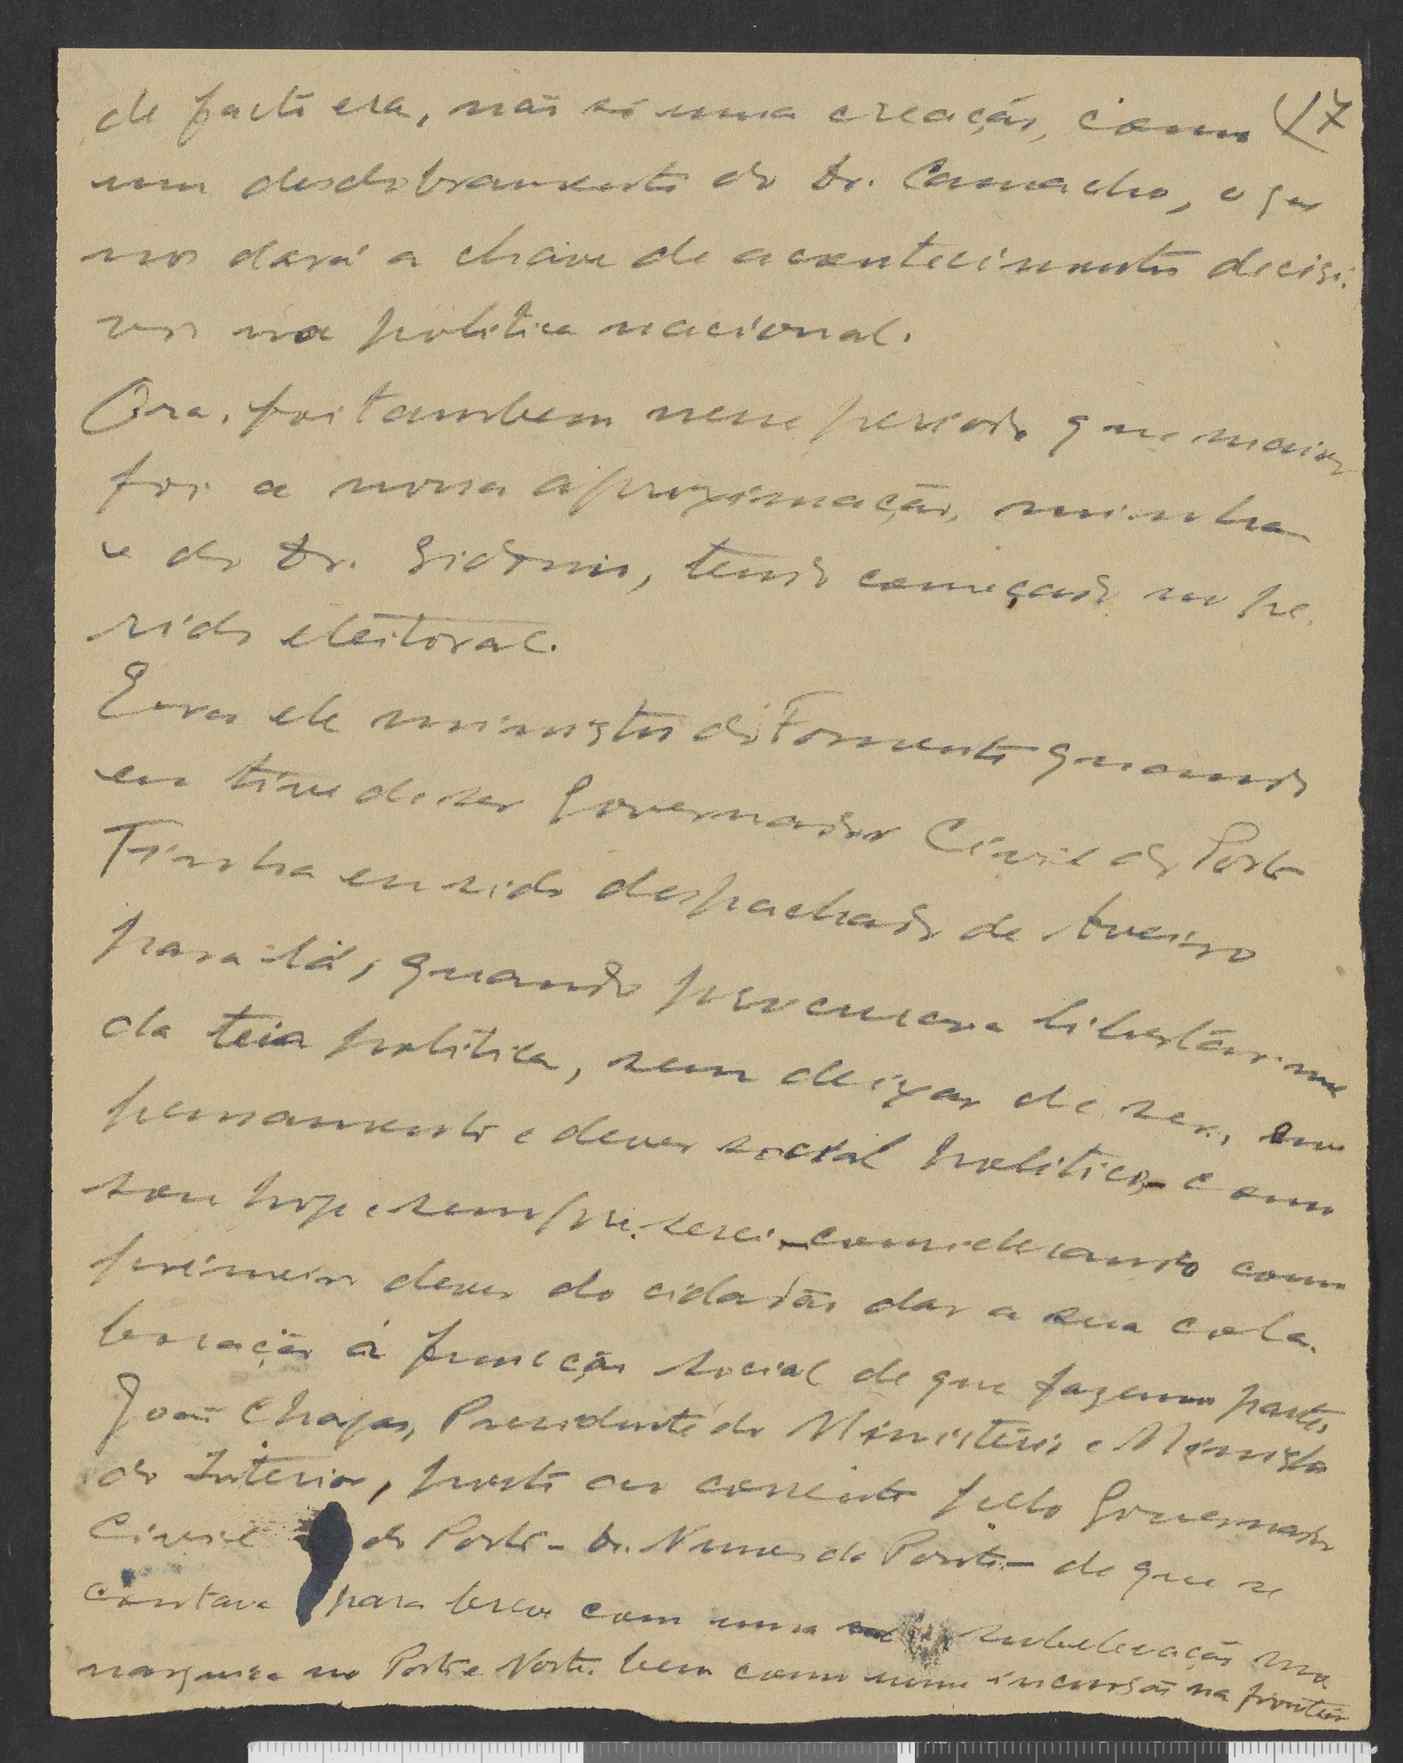 de facto era, não só uma creação, como 17
um desdobramento do Dr. Camacho, o que
nos dará a chave de acontecimentos decisi-
vos na politica nacional.
Ora, foi tambem nesse periodo que maior
foi a nossa aproximação, minha
e do Dr. Sidonio, tendo começado no pe-
riodo eleitoral.
Era ele ministro do Fomento quando
eu tive de ser Governador Civil do Porto
Tinha eu sido despachado de Aveiro
para lá, quando procurava libertar-me
da teia politica, sem deixar de ser, em
pensamento e dever social politico, - como
sou hoje e sempre serei - considerando como
primeiro dever do cidadão dar a sua cola-
boração á função social de que fazemos parte.
João Chagas, Presidente do Ministerio e Ministro
do Interior, posto ao corrente pelo Governador
Civil do Porto - Dr. Nunes da Ponte - de que se
contava para breve com uma sublevação mo-
narquica no Porto e Norte, bem como uma incursão na fronteira